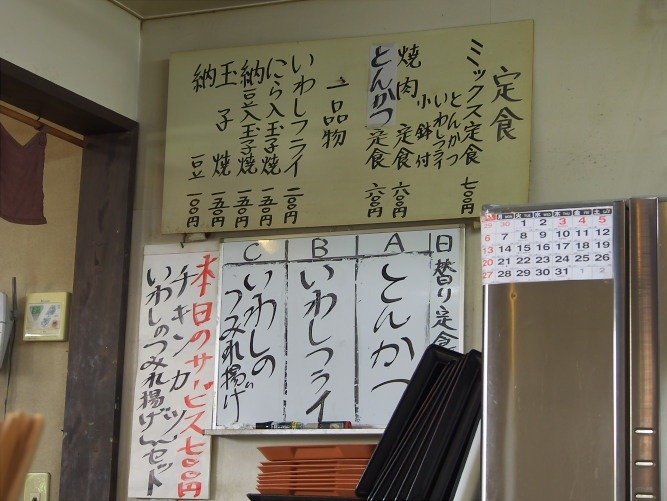 定食
ミックス定食 七〇〇円
とんかつ
いわしフライ
小鉢付
焼肉定食 六〇〇円
とんかつ定食 六〇〇円
一品物
いわしフライ 二〇〇円
にら入玉子焼 一五〇円
納豆入玉子焼 一五〇円
玉子焼 一五〇円
納豆 一〇〇円
日替り定食
A とんかつ
B いわしフライ
C いわしの
つみれ揚げ
本日のサービス七〇〇円
チキンカツ
いわしのつみれ揚げセット
日 月 火 水 木 金 土
29 30 1 2 3 4 5
6 7 8 9 10 11 12
13 14 15 16 17 18 19
20 21 22 23 24 25 26
27 28 29 30 31 1 2